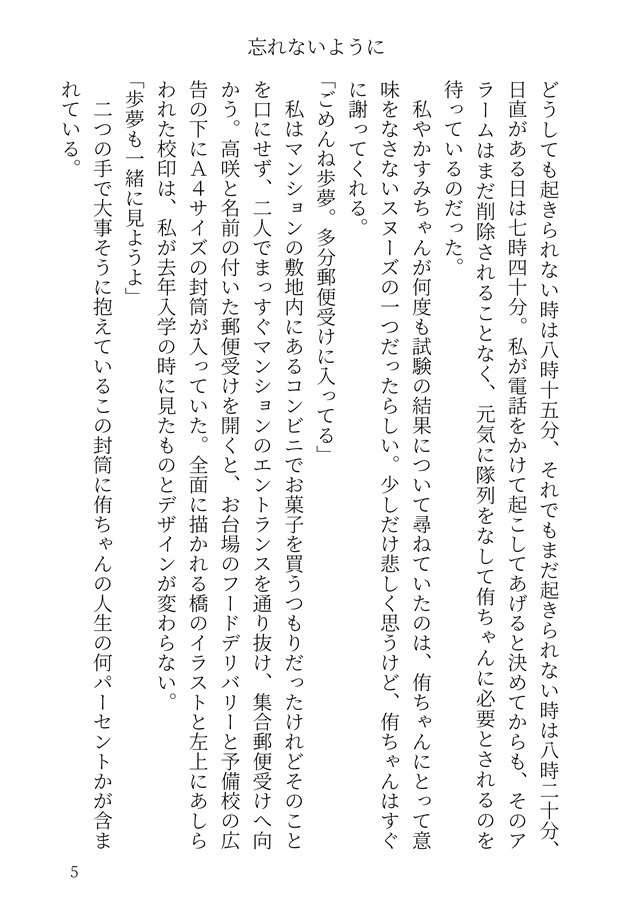 忘れないように
どうしても起きられない時は八時十五分、それでもまだ起きられない時は八時二十分、
日直がある日は七時四十分。私が電話をかけて起こしてあげると決めてからも、そのア
ラームはまだ削除されることなく、元気に隊列をなして侑ちゃんに必要とされるのを
待っているのだった。
　私やかすみちゃんが何度も試験の結果について尋ねていたのは、侑ちゃんにとって意
味をなさないスヌーズの一つだったらしい。少しだけ悲しく思うけど、侑ちゃんはすぐ
に謝ってくれる。
「ごめんね歩夢。多分郵便受けに入ってる」
　私はマンションの敷地内にあるコンビニでお菓子を買うつもりだったけれどそのこと
を口にせず、二人でまっすぐマンションのエントランスを通り抜け、集合郵便受けへ向
かう。高咲と名前の付いた郵便受けを開くと、お台場のフードデリバリーと予備校の広
告の下にＡ４サイズの封筒が入っていた。全面に描かれる橋のイラストと左上にあしら
われた校印は、私が去年入学の時に見たものとデザインが変わらない。
「歩夢も一緒に見ようよ」
　二つの手で大事そうに抱えているこの封筒に侑ちゃんの人生の何パーセントかが含ま
れている。
5